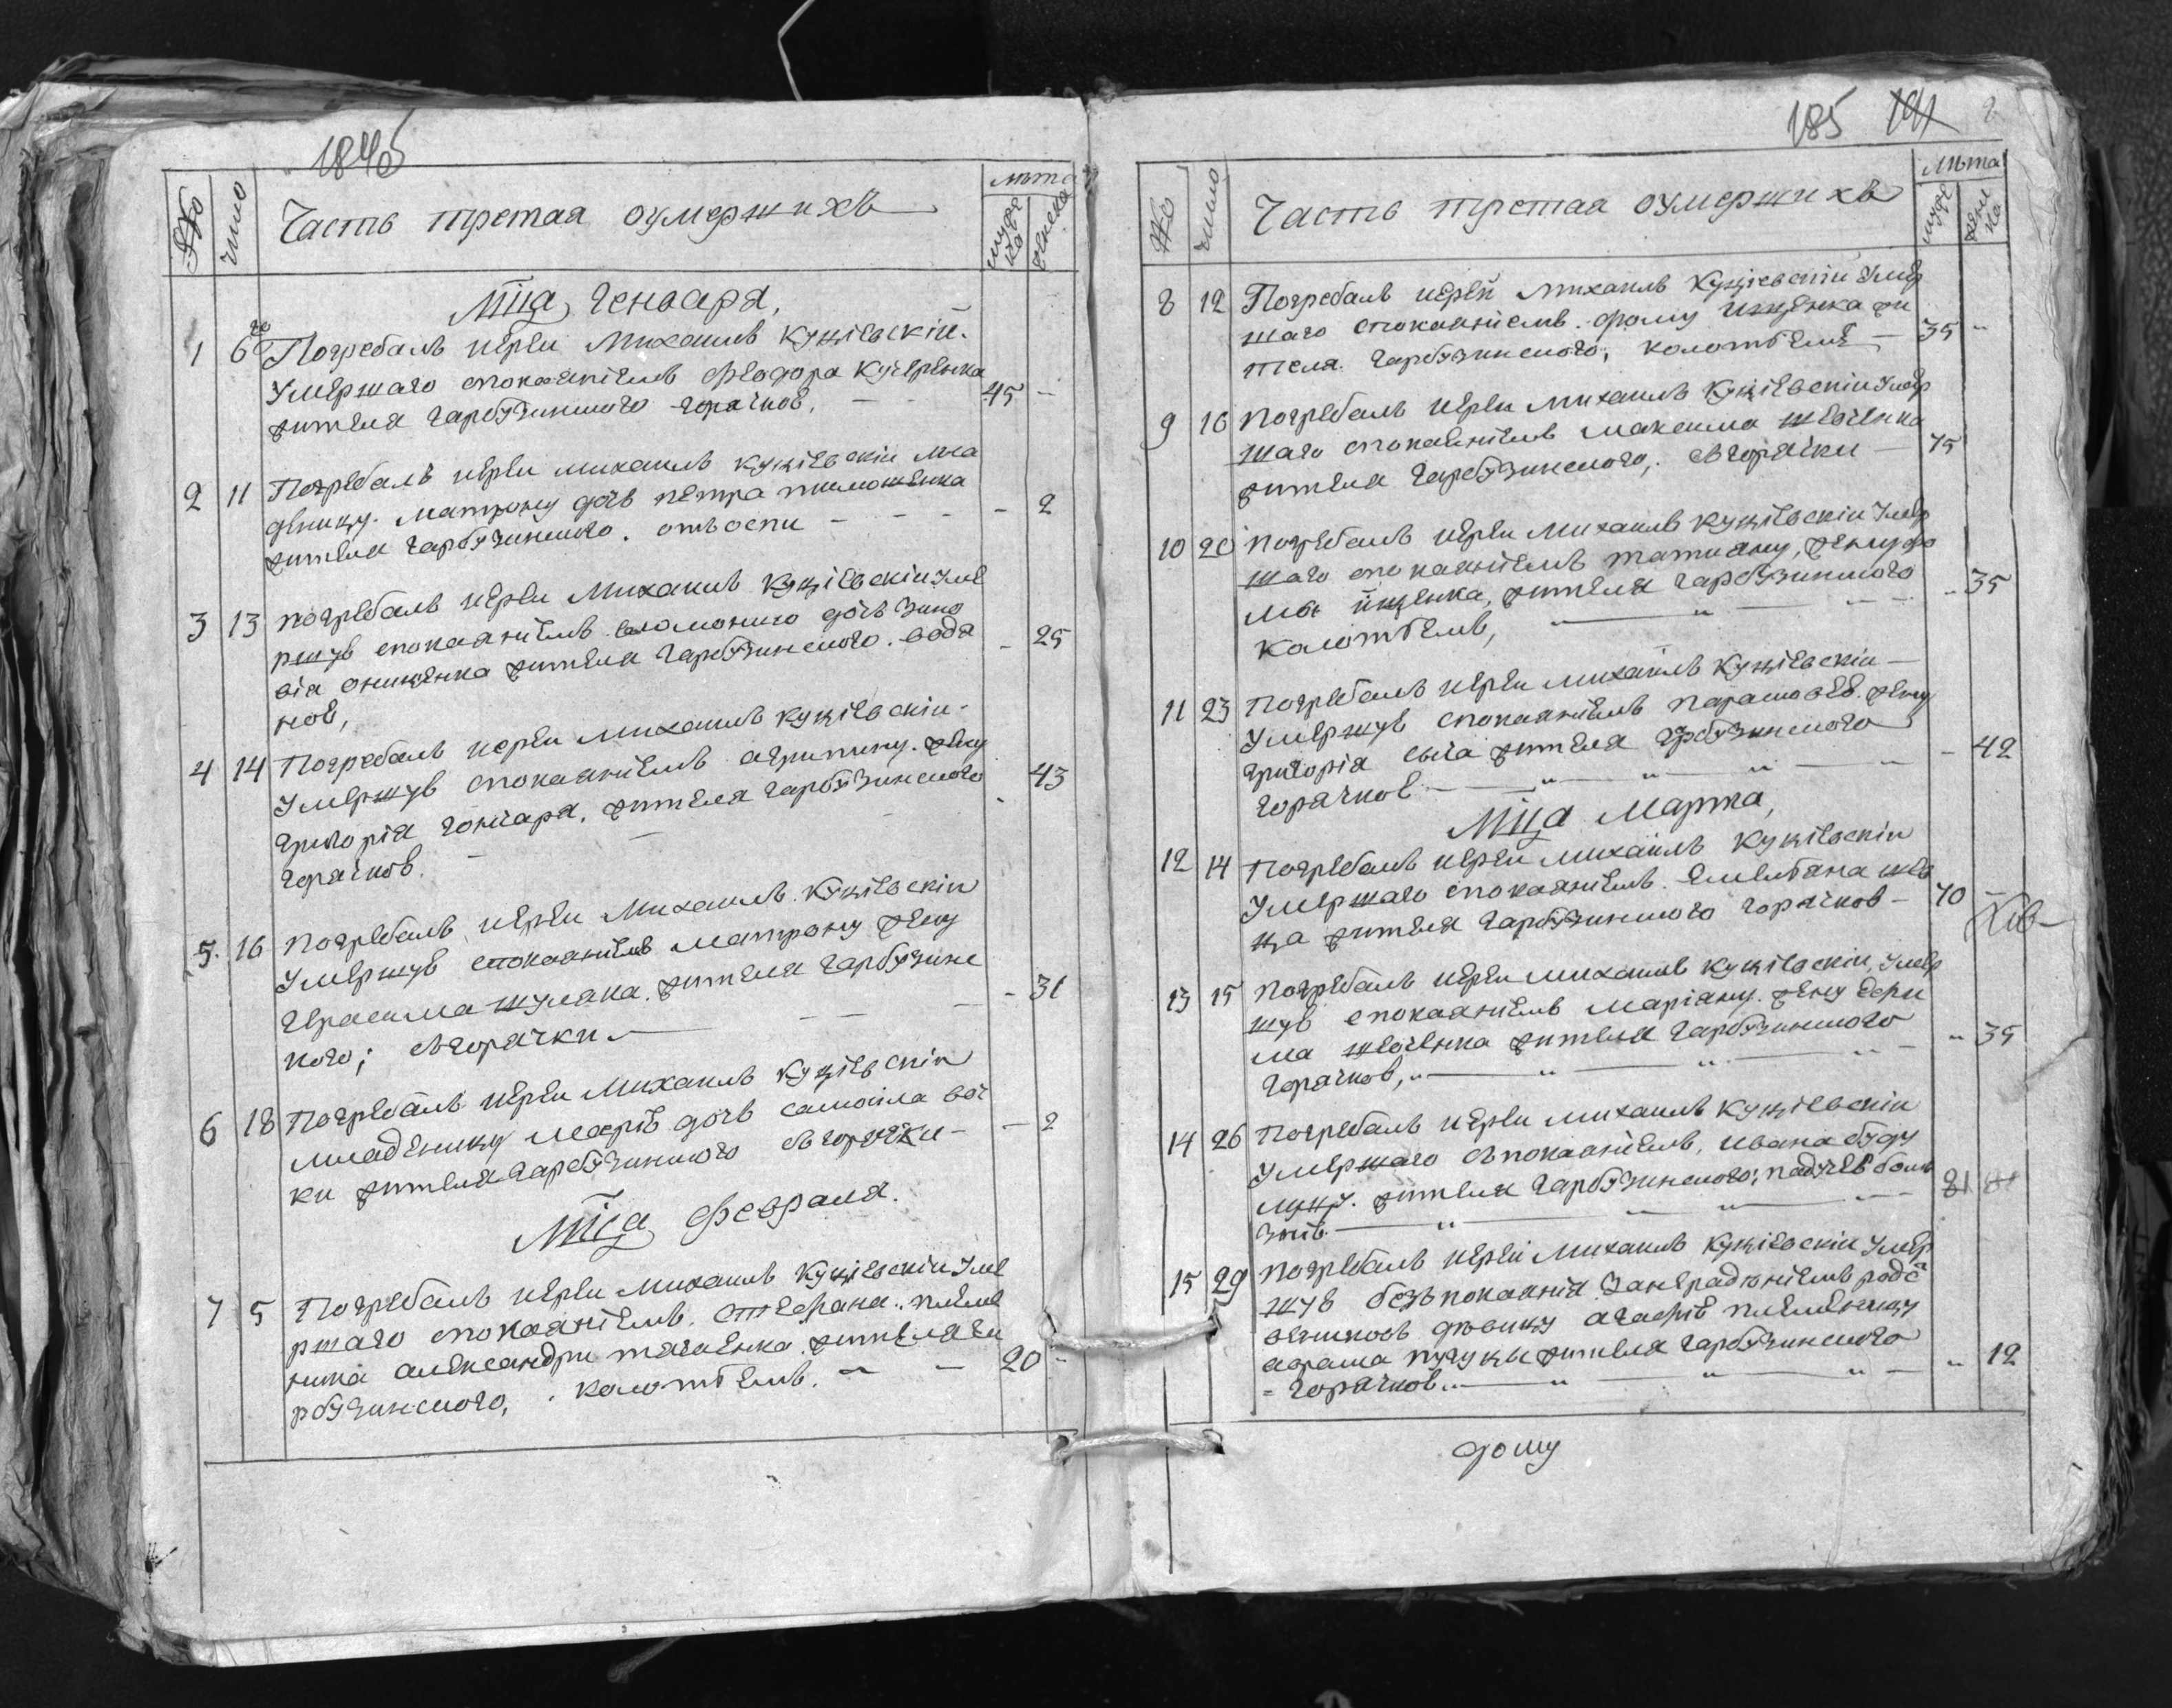 184
№
число
Часть третая оумершихъ
лѣта
мужеска
женска
Мца Генваря,
1 6го Погребалъ иерей Михаилъ Куцѣевскій.
Умершаго спокаяніемъ Феодора Кучеренка
жителя Гарбузинского горячков, — 45 —
2 11 Погребалъ иерей Михаилъ Куцѣевскій мла
деницу. Матрону дочь Петра Тимошенка
жителя Гарбузинского. отъ оспи - - - 2
3 13 погребалъ иерей Михаилъ Куцѣевскій уме
ршую спокаяніемъ Соломонию дочь Зино
вія Онищенка жителя Гарбузинского. водя - 25
нов,
4 14 Погребалъ иерей Михаилъ Куцѣевскій -
Умершую спокаяніемъ Агрипину. жену
Григорія Гончара, жителя Гарбузинского - 43
горячков.
5. 16 погребалъ иерей Михаилъ Куцѣевскій
Умершую спокаяніемъ Матрону жену
Герасима Шуляка. жителя Гарбузинс - 31
кого; съгорячки
6 18 Погребалъ иерей Михаилъ Куцѣевскій
младеницу Марію дочь Самоила
ки жителя Гарбузинского съгорячки - 2
Мца Февраля.
7 5 Погребалъ иерей Михаилъ Куцѣевскій Уме
ршаго спокаяніемъ. Стефана. племе
ника Александри жителя Га
рбузинского, колотѣемъ. — 20 -
185
№
число
Часть третая оумершихъ
лѣта
муже
женска
8 12 Погребалъ иерей Михаилъ Куцѣевскій Умер
шаго спокаяніемъ. Фому Ищенка жи
теля Гарбузинского, колотѣемъ — 35 "
9 16 Погребалъ иерей Михаилъ Куцѣевскій Умер
шаго спокаяніемъ Максима Шевченка
жителя Гарбузинского, съгорячки — 75
10 20 Погребалъ иерей Михаилъ Куцѣевскій Умер
шаго спокаяніемъ Татияну, жену Фо
мы Ищенка, жителя Гарбузинского - 35
Колотѣемъ,
11 23 Погребалъ иерей Михаилъ Куцѣевскій —
Умершую спокаяніемъ жену
Григорія жителя Гарбузинского - 42
горячков
Мца Марта,
12 14 Погребалъ иерей Михаилъ Куцѣевскій
Умершаго спокаяніемъ. Емелiана Шев
ца жителя Гарбузинского горячков - 70 -
13 15 Погребалъ иерей Михаилъ Куцѣевскій, Умер
шую спокаяніемъ Маріану. жену
ма Шевченка жителя Гарбузинского " 35
горячков,
14 26 Погребалъ иерей Михаилъ Куцѣевскій
Умершаго съпокаяніемъ, Ивана
жителя Гарбузинского; падучею болѣ 81
знію
15 29 Погребалъ иерей Михаилъ Куцѣевскій Умер
шую безъ покаянія Занерадѣніемъ родс
твеников дѣвицу Агафію племеницу
жителя Гарбузинского " 12
горячков
дому